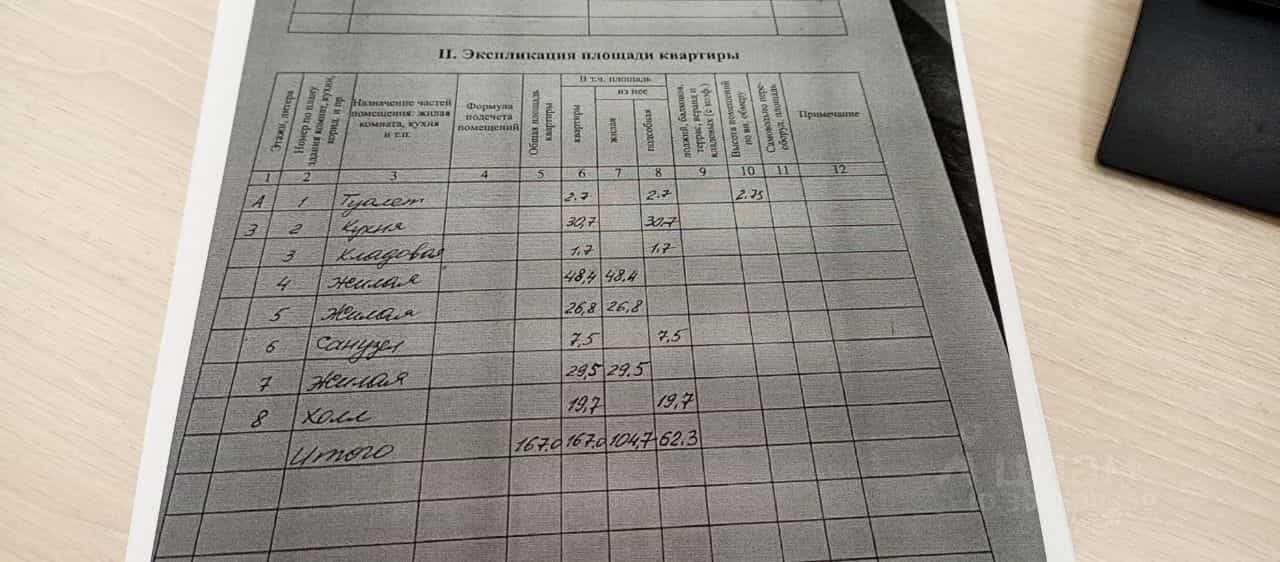 II. Экспликация площади квартиры
Этажи, литера
Номер по плану здания комнат, кухни, корид. и пр.
Назначение частей помещения: жилая комната, кухня и т.п.
Формула подсчета помещений
Общая площадь квартиры
В т.ч. площадь
квартиры
из нее
жилая
подсобная
лоджий, балконов, террас, веранд и кладовых (с коэф.)
Высота помещений по вн. обмеру
Самовольно пере-оборуд. площадь
Примечание
1 2 3 4 5 6 7 8 9 10 11 12
А 1 Туалет 2.7 2.7 2.75
3 2 Кухня 30,7 30.7
3 Кладовая 1.7 1.7
4 Жилая 48,4 48.4
5 Жилая 26,8 26,8
6 Санузел 7,5 7.5
7 Жилая 29,5 29.5
8 Холл 19,7 19,7
Итого 167.0 167.0 104,7 62.3
циан